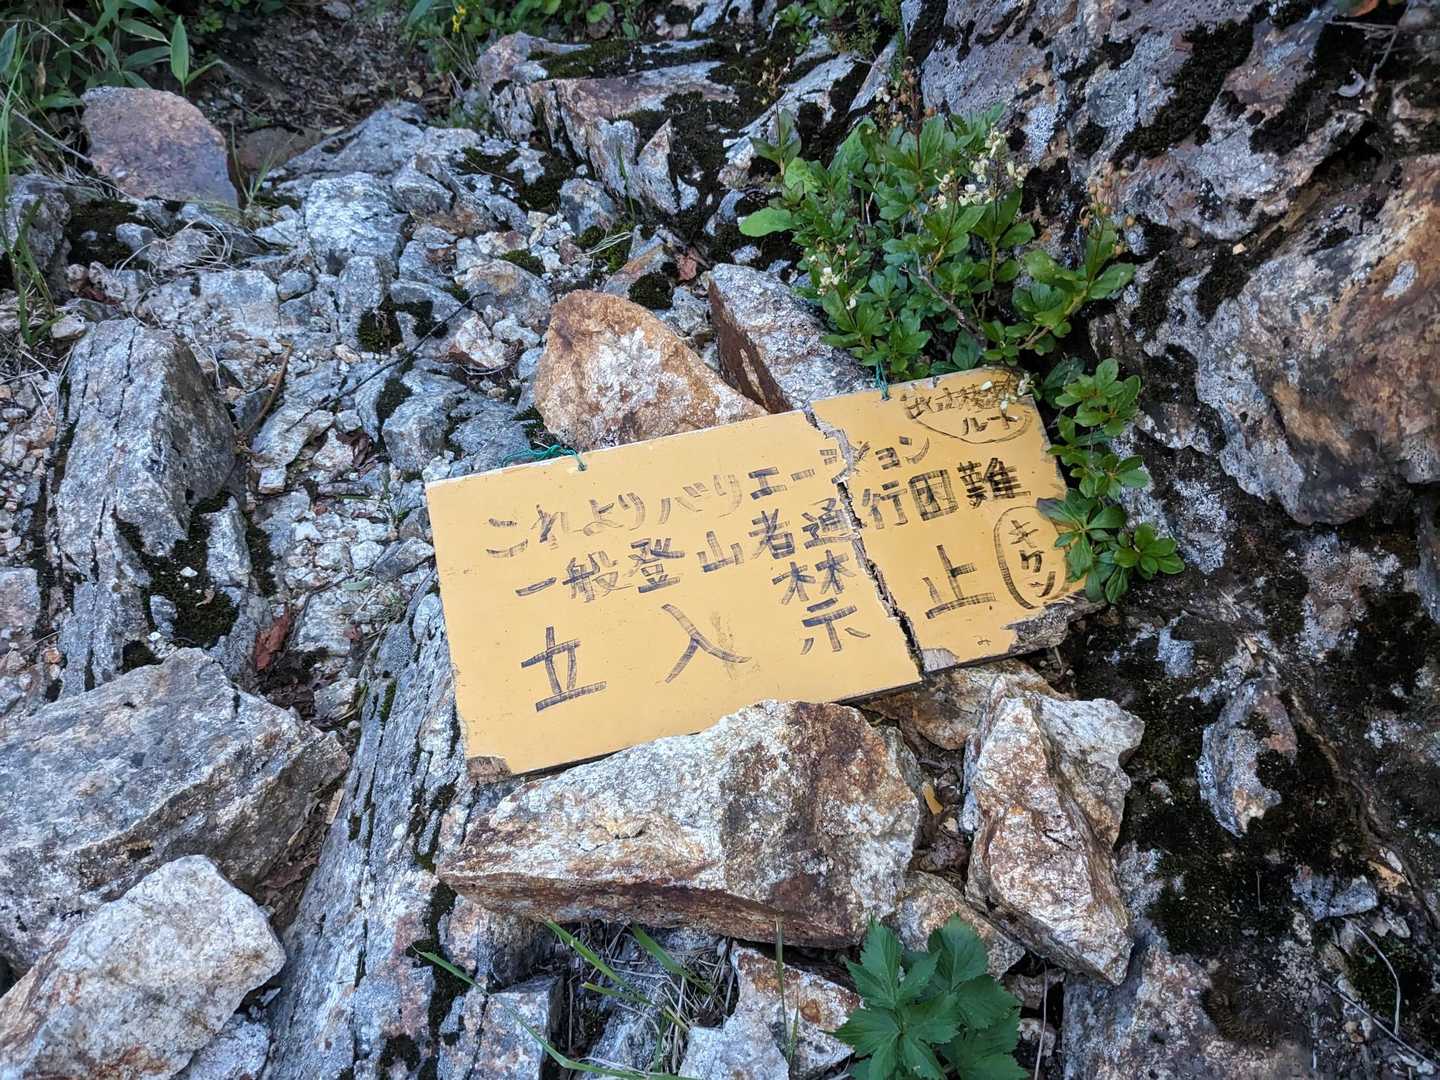 これよりバリエーション
ルート
一般登山者通行困難
立入禁止
キケン